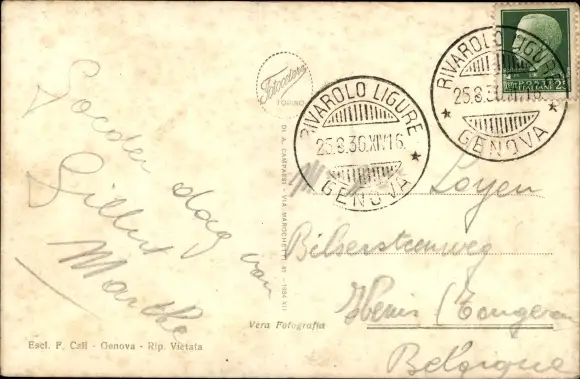 Goeden dag van
Gillut
Marthe
Fotocelere
TORINO
RIVAROLO LIGURE
25.8.36.XIV.16
GENOVA
RIVAROLO LIGURE
25.8.36.XIV.16
GENOVA
POSTE ITALIANE
Loyen
Bilsersteenweg
Henis (Tongeren
Belgique
DI A. CAMPASSI - VIA MAROCHETTI 41 - 1934-XII
Vera Fotografia
Escl. F. Cali - Genova - Rip. Vietata